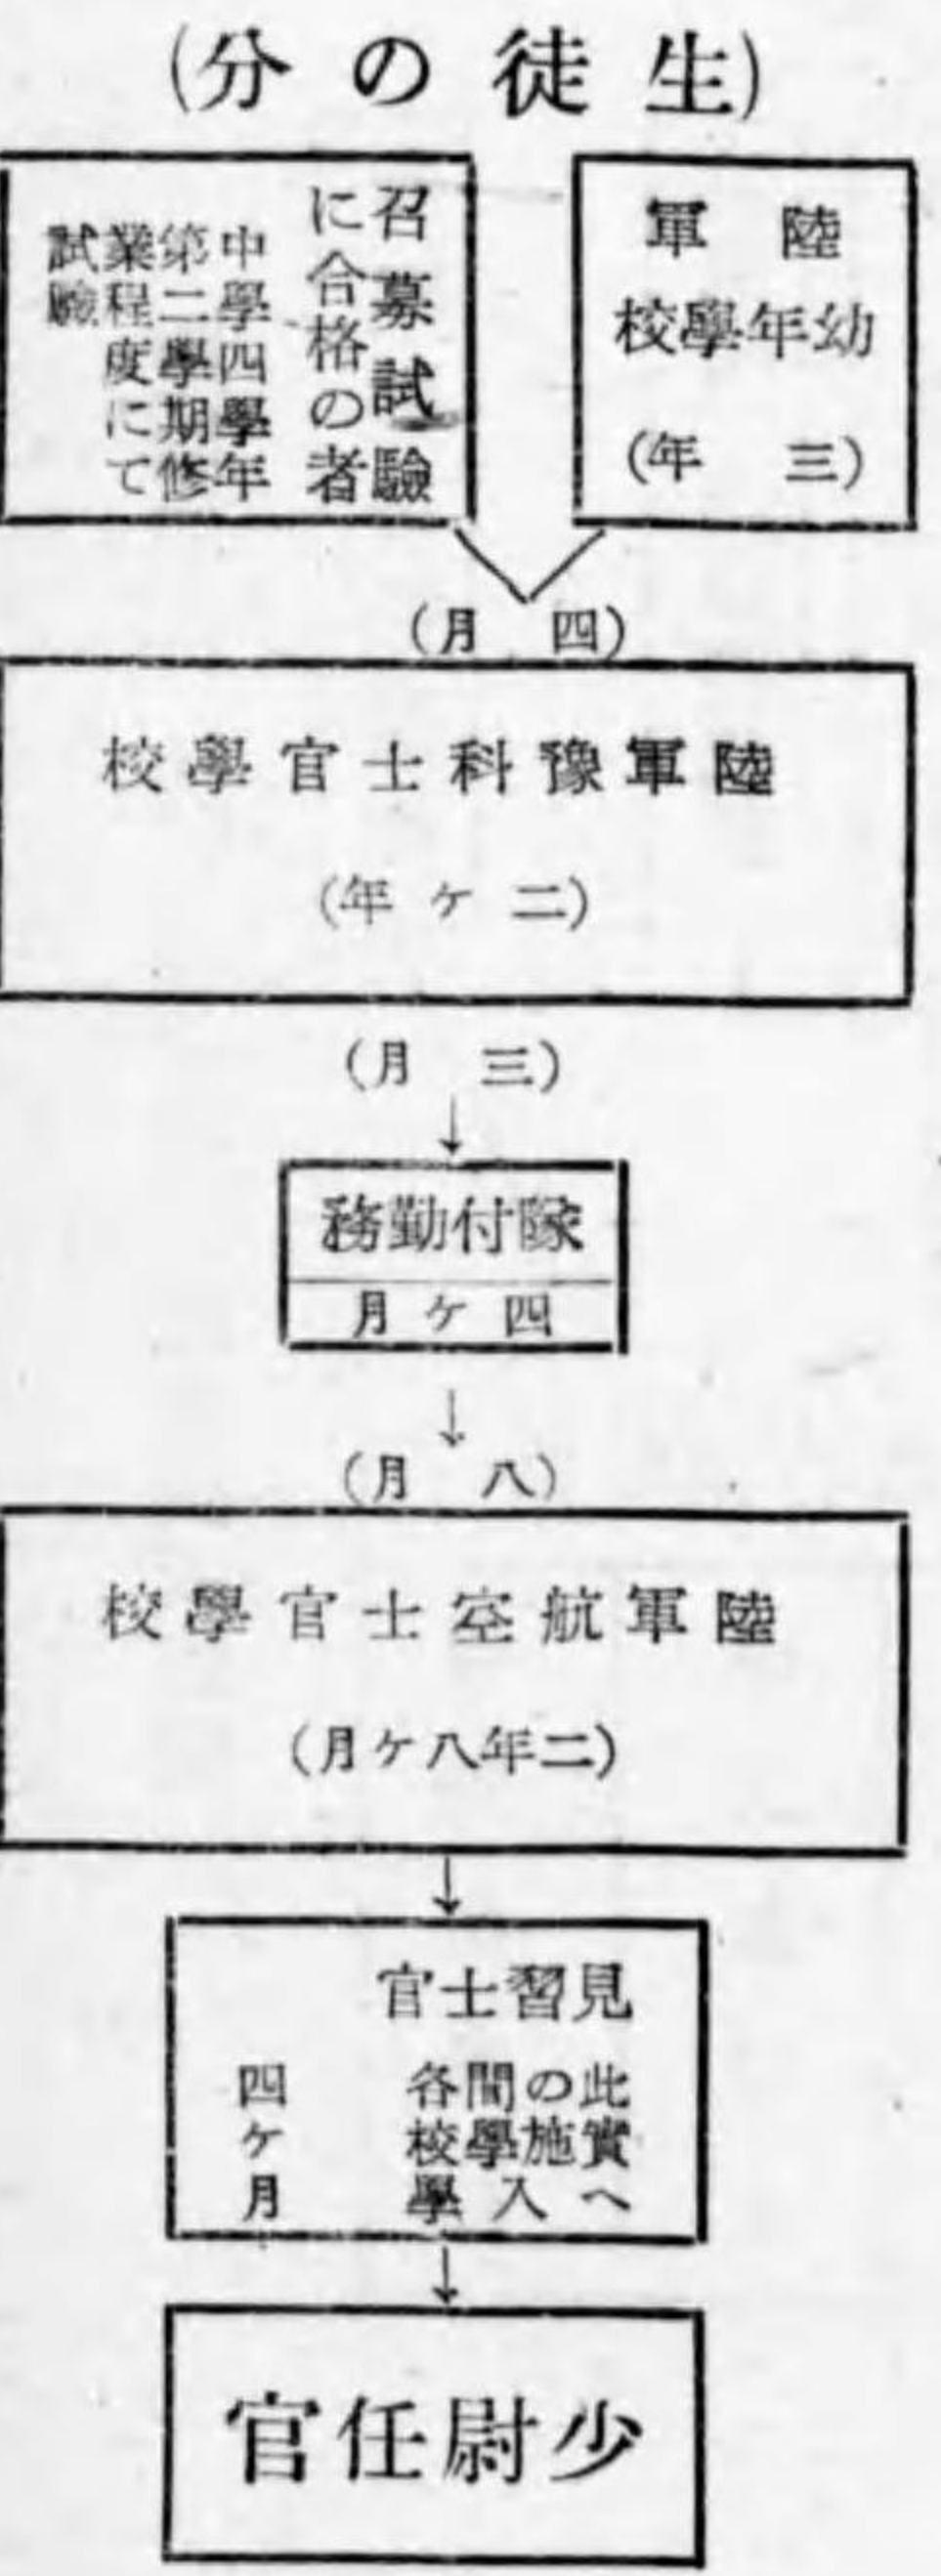 (生徒の分)
陸軍
幼年學校
(三年)
召募試驗
に合格の者
中學四學年
第二學期修
業程度にて
試驗
(四月)
陸軍豫科士官學校
(二ケ年)
(三月)
隊付勤務
四ケ月
(八月)
陸軍航空士官學校
(二年八ケ月)
見習士官
此の間各
實施學校
へ入學
四ケ月
少尉任官